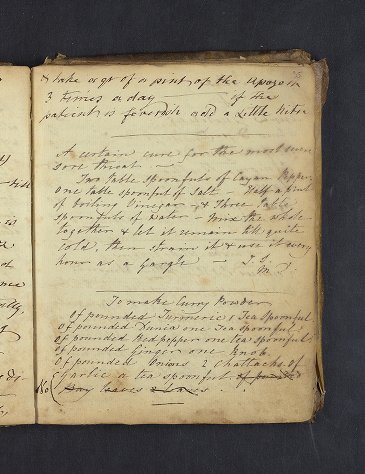 & take a qr of a pint of the Apozem
3 times a day — if the
patient is feverish add a little Nitre
A certain cure for the most severe
sore throat —
Two table spoonfuls of Cayan Pepper
one table spoonful of Salt — Half a pint
of boiling Vinegar — & Three table
spoonfuls of water — mix the whole
together & let it remain till quite
cold, then strain it & use it every
hour as a gargle —
To make Curry Powder
of pounded Turmeric 1 Tea spoonful
of pounded Dunia one Tea spoonful
of pounded Red pepper one tea spoonful
of pounded Ginger one knob
of pounded Onions 2 Chattacks of
Garlic a tea spoonful of pounded
leaves